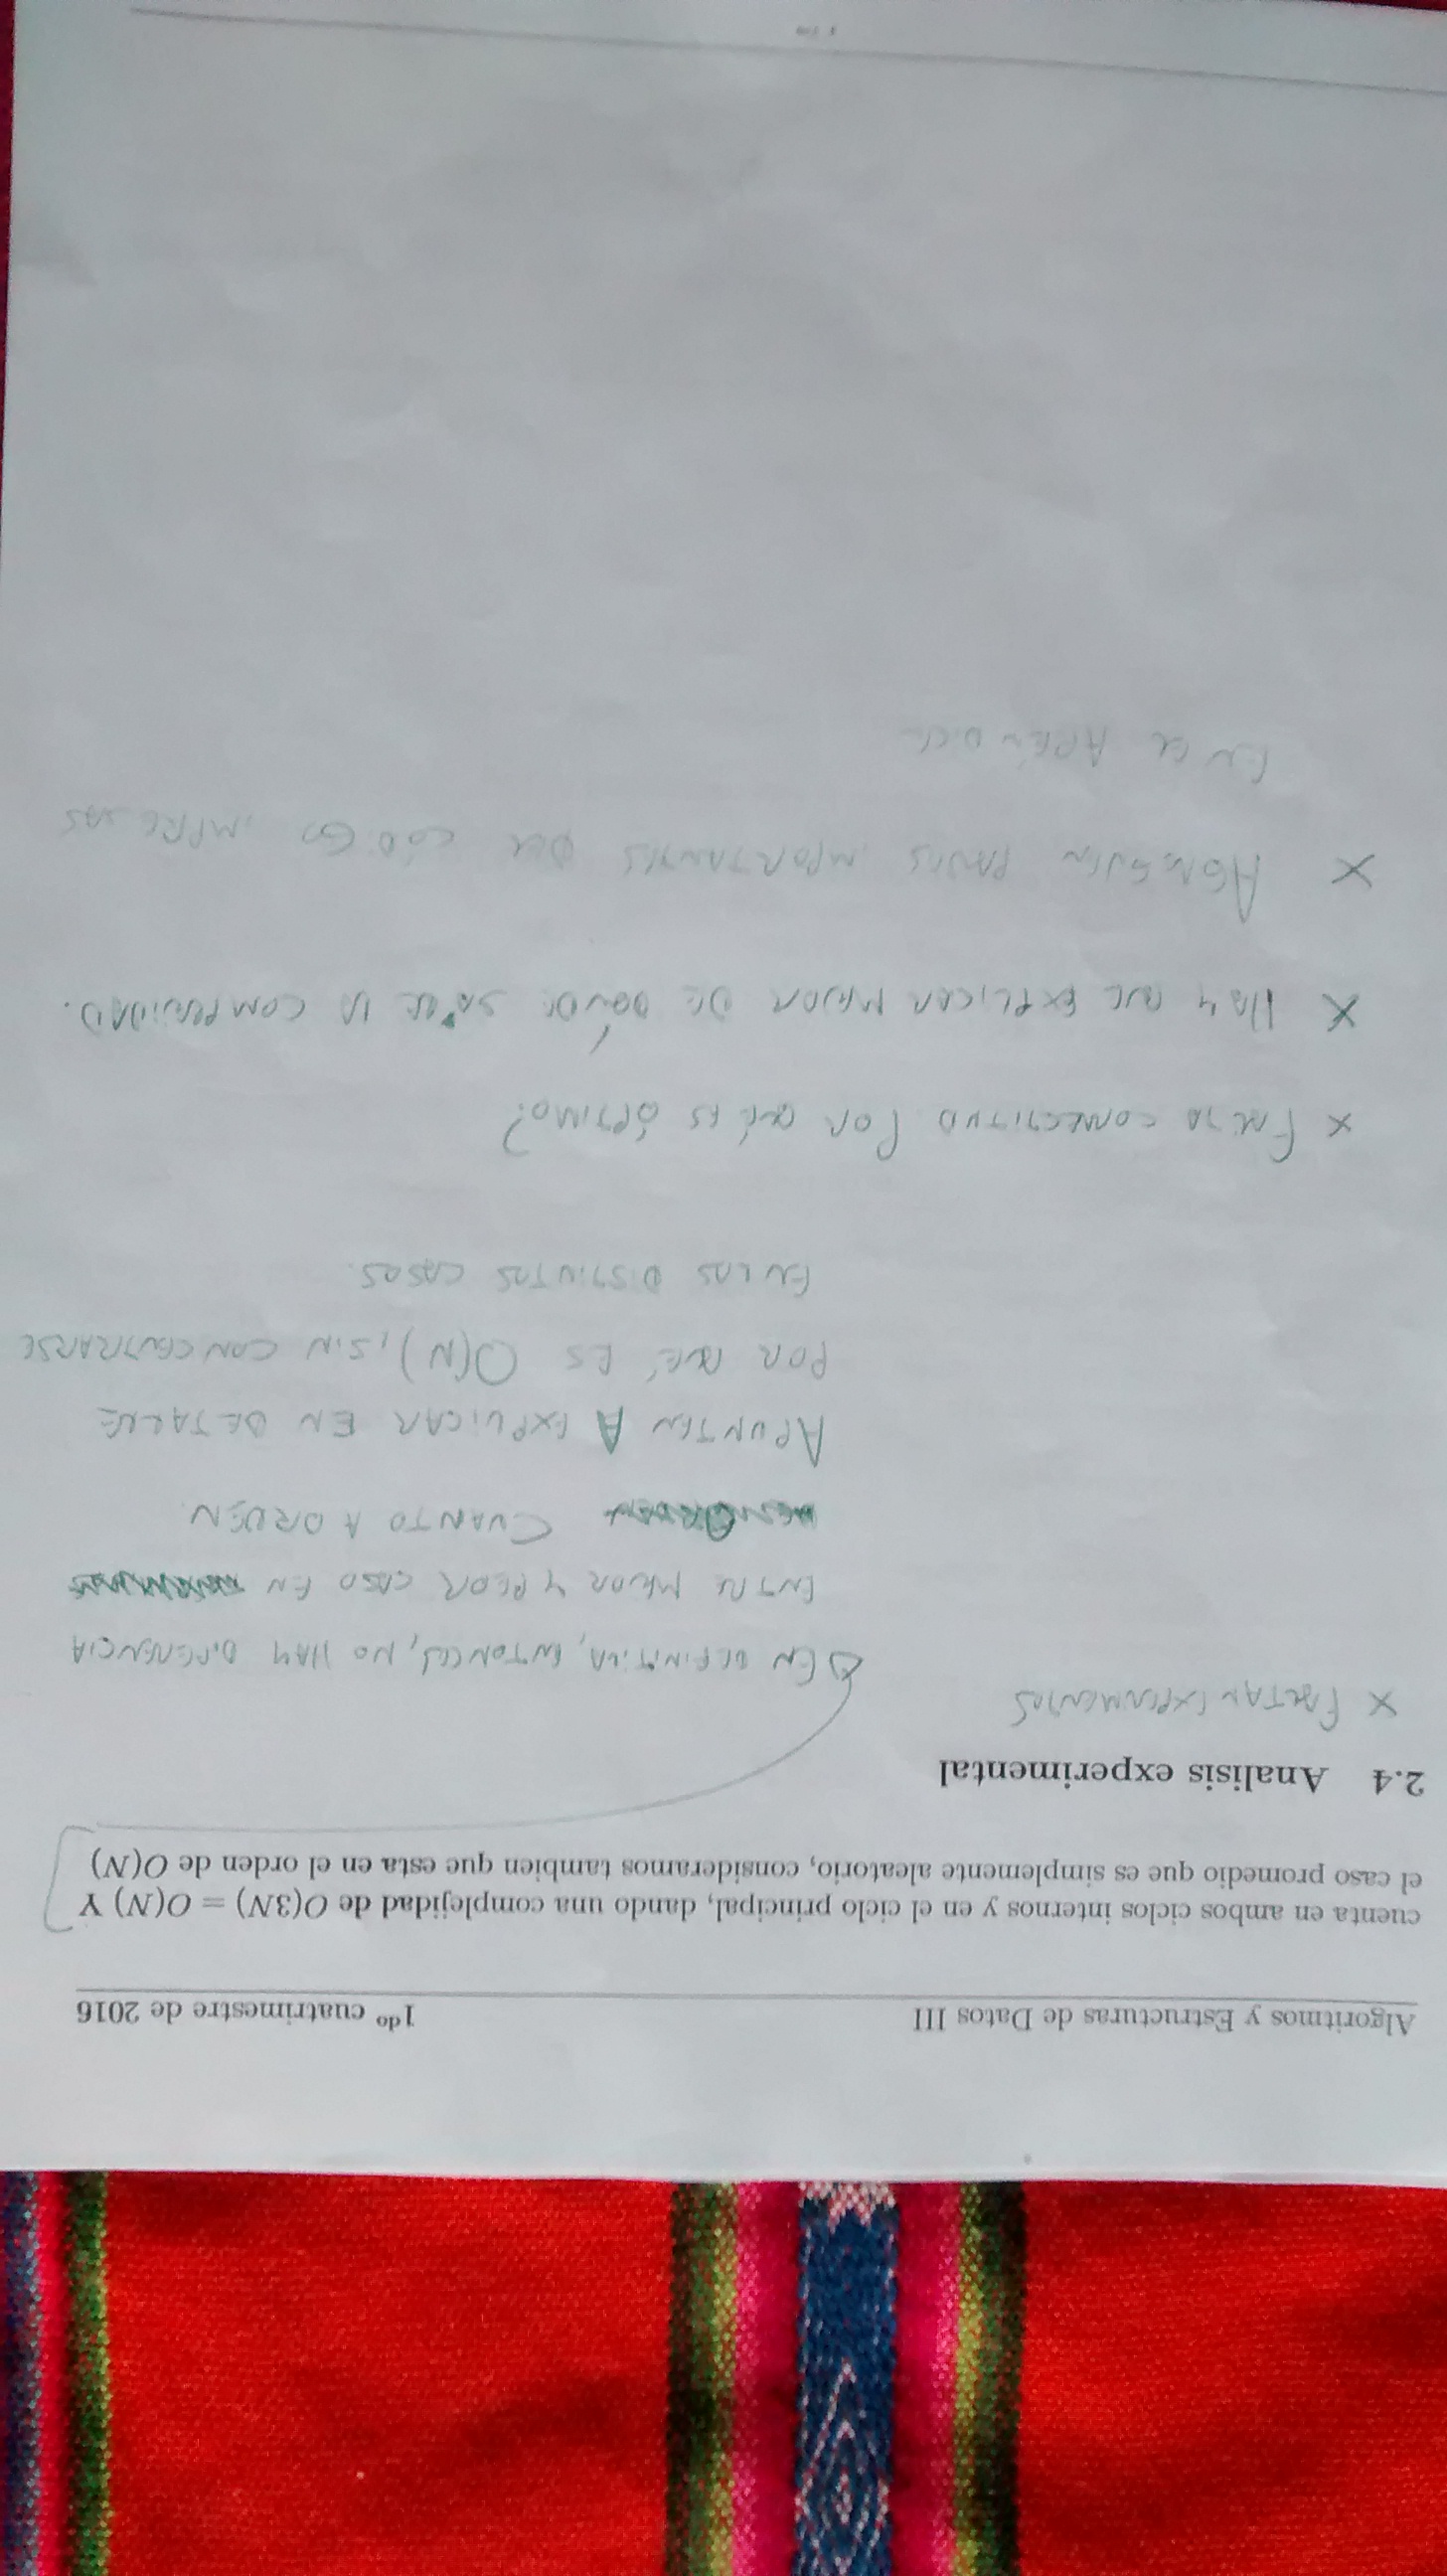 Algoritmos y Estructuras de Datos III 1do cuatrimestre de 2016
cuenta en ambos ciclos internos y en el ciclo principal, dando una complejidad de O(3N) = O(N) Y
el caso promedio que es simplemente aleatorio, consideramos tambien que esta en el orden de O(N)
2.4 Analisis experimental
X FALTAN EXPERIMENTOS
EN DEFINITIVA, ENTONCES, NO HAY DIFERENCIA
ENTRE MEJOR Y PEOR CASO EN
CUANTO A ORDEN
APUNTEN A EXPLICAR EN DETALLE
POR QUÉ ES O(N), SIN CONCENTRARSE
EN LOS DISTINTOS CASOS.
X FALTA CORRECTITUD POR QUÉ ES ÓPTIMO?
X HAY QUE EXPLICAR MEJOR DE DÓNDE SALE LA COMPLEJIDAD.
X AGREGUEN PARTES IMPORTANTES DEL CÓDIGO IMPRESAS
EN EL APÉNDICE